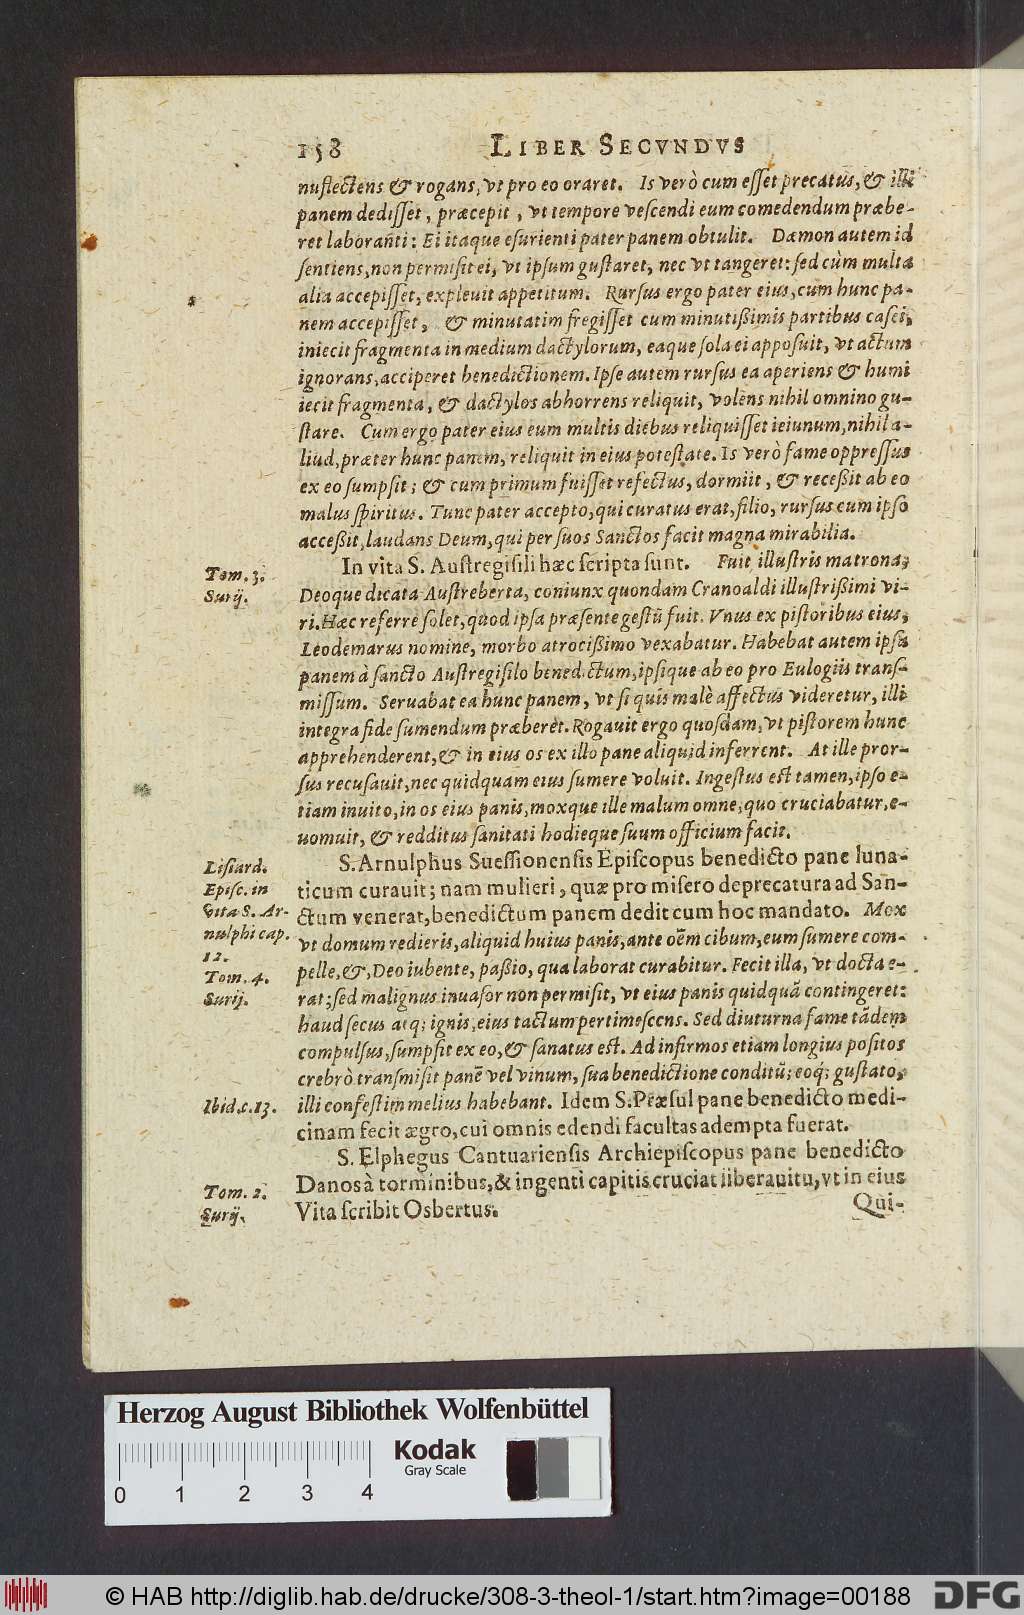 158 LIBER SECVNDVS
nuflectens & rogans, vt pro eo oraret. Is verò cum eſſet precatus, & illi
panem dediſſet, præcepit, vt tempore veſcendi eum comedendum præbe-
ret laboranti: Ei itaque eſurienti pater panem obtulit. Dæmon autem id
ſentiens, non permiſit ei, vt ipſum guſtaret, nec vt tangeret: ſed cùm multa
alia accepiſſet, expleuit appetitum. Rurſus ergo pater eius, cum hunc pa-
nem accepiſſet, & minutatim fregiſſet cum minutißimis partibus caſei,
iniecit fragmenta in medium dactylorum, eaque ſola ei appoſuit, vt actum
ignorans, acciperet benedictionem. Ipſe autem rurſus ea aperiens & humi
iecit fragmenta, & dactylos abhorrens reliquit, volens nihil omnino gu-
ſtare. Cum ergo pater eius eum multis diebus reliquiſſet ieiunum, nihil a-
liud, præter hunc panem, reliquit in eius poteſtate. Is verò fame oppreſſus
ex eo ſumpſit; & cum primum fuiſſet refectus, dormiit, & receßit ab eo
malus ſpiritus. Tunc pater accepto, qui curatus erat, filio, rurſus cum ipſo
acceßit, laudans Deum, qui per ſuos Sanctos facit magna mirabilia.
Tom. 3.
Surij.
In vita S. Auſtregiſili hæc ſcripta ſunt. Fuit illuſtris matrona,
Deoque dicata Auſtreberta, coniunx quondam Cranoaldi illuſtrißimi vi-
ri. Hæc referre ſolet, quod ipſa præſente geſtū fuit. Vnus ex piſtoribus eius,
Leodemarus nomine, morbo atrocißimo vexabatur. Habebat autem ipſa
panem à ſancto Auſtregiſilo benedictum, ipſique ab eo pro Eulogiis tranſ-
miſſum. Seruabat ea hunc panem, vt ſi quis malè affectus videretur, illi
integra fide ſumendum præberet. Rogauit ergo quoſdam, vt piſtorem hunc
apprehenderent, & in eius os ex illo pane aliquid inferrent. At ille pror-
ſus recuſauit, nec quidquam eius ſumere voluit. Ingeſtus eſt tamen, ipſo e-
tiam inuito, in os eius panis, moxque ille malum omne, quo cruciabatur, e-
uomuit, & redditus ſanitati hodieque ſuum officium facit.
Liſiard.
Epiſc. in
vita S. Ar-
nulphi cap.
12.
Tom. 4.
Surij.
S. Arnulphus Sueſſionenſis Epiſcopus benedicto pane luna-
ticum curauit; nam mulieri, quæ pro miſero deprecatura ad San-
ctum venerat, benedictum panem dedit cum hoc mandato. Mox
vt domum redieris, aliquid huius panis, ante oēm cibum, eum ſumere com-
pelle, &, Deo iubente, paßio, qua laborat curabitur. Fecit illa, vt docta e-
rat; ſed malignus inuaſor non permiſit, vt eius panis quidquā contingeret:
haud ſecus atq; ignis, eius tactum pertimeſcens. Sed diuturna fame tādem
compulſus, ſumpſit ex eo, & ſanatus eſt. Ad infirmos etiam longius poſitos
crebrò tranſmiſit panē vel vinum, ſua benedictione conditū; eoq́; guſtato,
Ibid. c. 13.
illi confeſtim melius habebant. Idem S. Præſul pane benedicto medi-
cinam fecit ægro, cui omnis edendi facultas adempta fuerat.
S. Elphegus Cantuarienſis Archiepiſcopus pane benedicto
Tom. 2.
Surij.
Danos à torminibus, & ingenti capitis cruciat liberauitu, vt in eius
Vita ſcribit Osbertus.
Qui-
Herzog August Bibliothek Wolfenbüttel
0 1 2 3 4
Kodak
Gray Scale
© HAB http://diglib.hab.de/drucke/308-3-theol-1/start.htm?image=00188
DFG